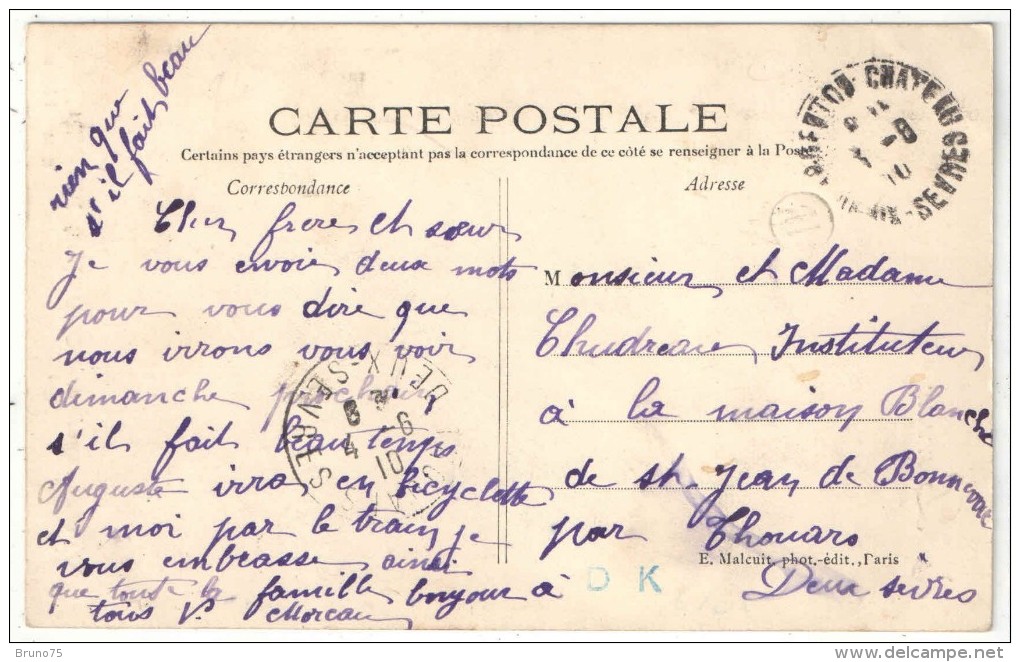 rien que
s'il fait beau
CARTE POSTALE
Certains pays étrangers n'acceptant pas la correspondance de ce côté se renseigner à la Poste
Correspondance
Adresse
Cher frère et sœur
Je vous envoie deux mots
pour vous dire que
nous irrons vous voir
dimanche prochain
s'il fait beau temps
Auguste irra en bicyclette
et moi par le train je
vous embrasse ainsi
que toute la famille bonjour à
tous V. Moreau
Monsieur et Madame
Chudreau Instituteur
à la maison Blanche
de St Jean de Bonneval
par Thouars
E. Malcuit, phot.-édit., Paris
Deux sevres
D K
CHATEAU
SEVRES
DEUX-SEVRES
Bruno75
www.delcampe.net